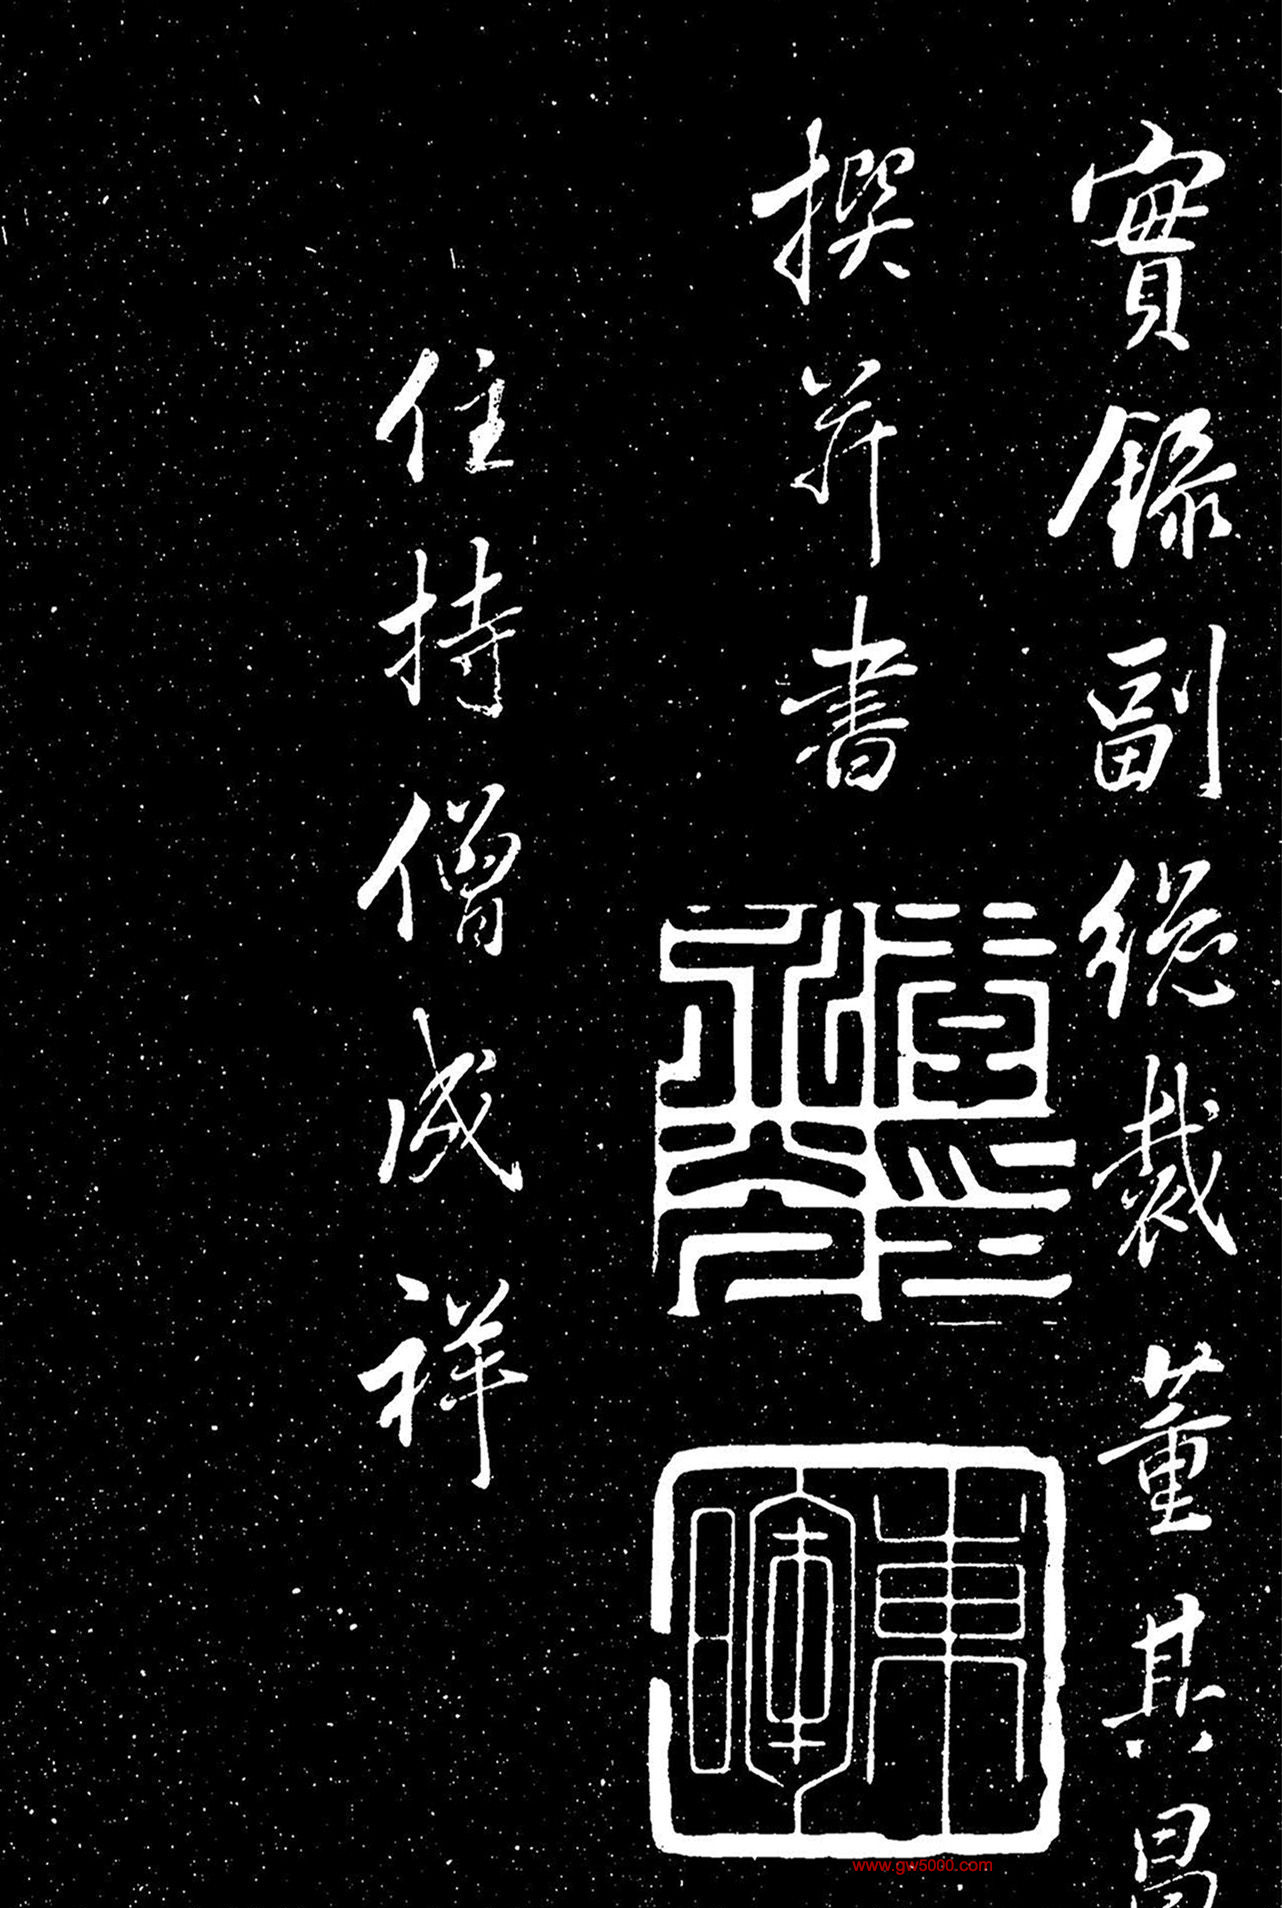 實錄副總裁董其昌
撰并書
住持僧成祥
www.gw5000.com